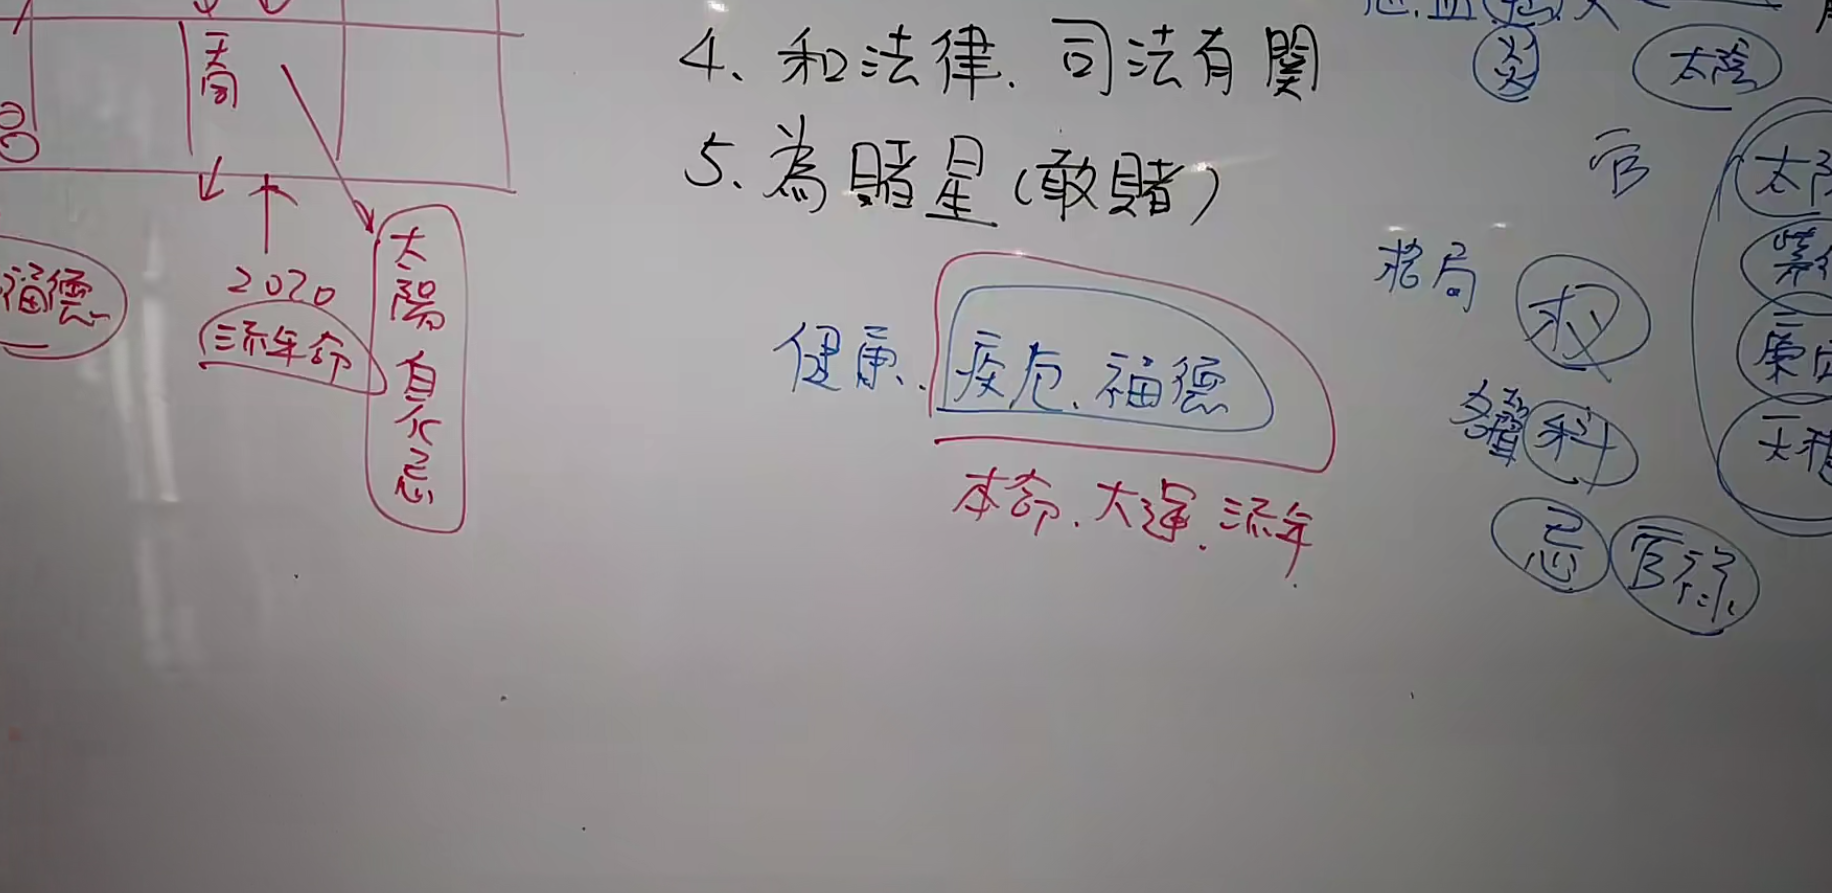 天同
2020
流年命
福德
太陽自化忌
4、和法律.司法有関
5、為賭星(敢賭)
健康、疾厄、福德
本命、大運.流年
炎
太陰
官
格局
权
科
忌 官祿